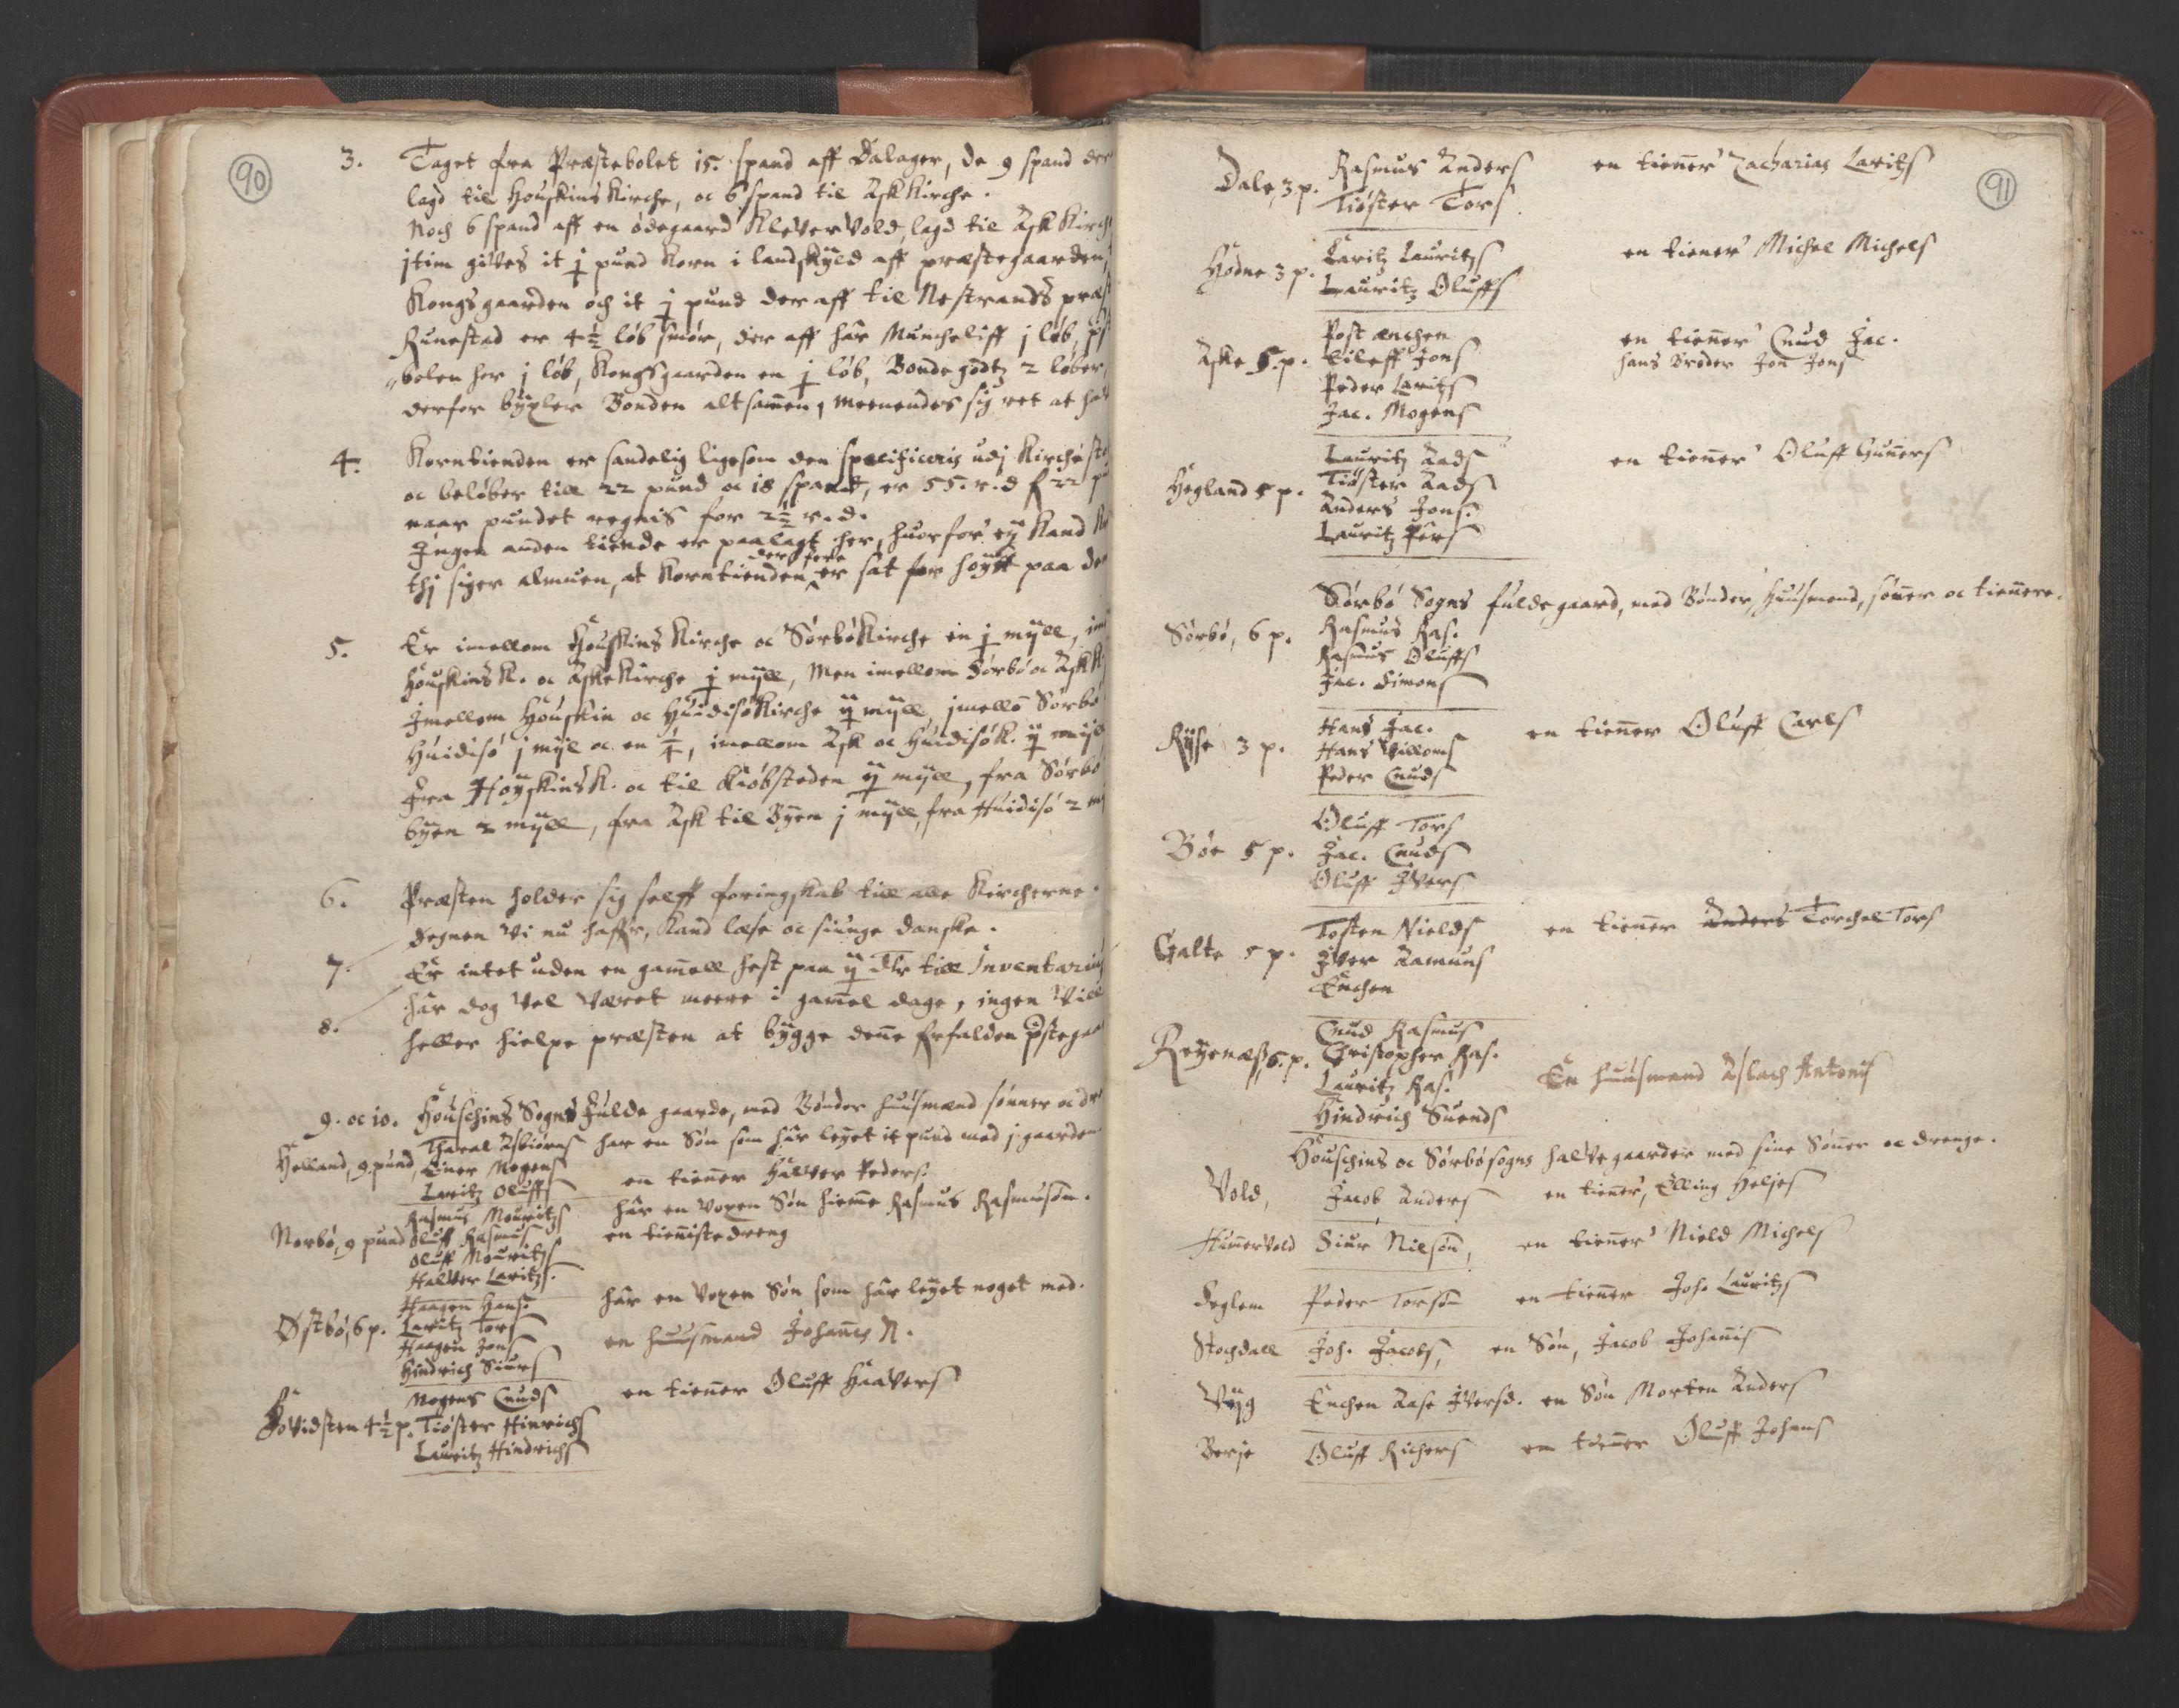 90
3. Taget fra Præstebolet 15. spand aff Dalager, de 9 spand der
lagd til Houskins Kirche, oc 6 spand til Ask Kirche.
Noch 6 spand aff en ødegaard Klevervold, lagd til Ask Kirch
jtim gives it j pund Korn i landskyld aff præstegaarden,
Kongsgaarden och it j pund der aff til Nestrands præst
Runestad er 4½ løb smør, der aff hâr Muncheliff j løb,
bolen her j løb, Kongsgaarden en j løb, Bonde godtz 2 løber,
derfor byxler Bonden altsamen, meenendes sig ret at ha
4. Korntienden er sandelig ligesom den specificeris udj Kirche
oc beløber till 22 pund oc 18 spand, er 55. r.d
naar pundet regnis for 2½ r.d.
Ingen anden tiende er paalagt her, huorfor ey Kand
thj siger almuen, at Korntienden ders fore er sat for høytt paa
5. Er imellom Houskins Kirche oc Sørbø Kirche en j myll,
Houskins K. oc Aske Kirche j myll, Men imellom Sørbø oc Ask K
Imellom Houskin oc Huidisø Kirche ij myll, jmellō Sørbø
Huidisø j myl oc en ¼, imellom Ask oc Huidisø K. ij myll
Fra Høyskins K. oc til Kiøbsteden ij myll, fra Sørbø
byen 2 myll, fra Ask til Byen j myll, fra Huidisø 2
6. Præsten holder sig selff foringskab till alle Kircherne.
Degnen Vi nu haffr, Kand læse oc siunge danske.
7. Er intet uden en gamell hest paa ij Dlr till Inventarium
hâr dog Vel Været meere i gamel dage, ingen Vill
8. heller hielpe præsten at bygge dene forfalden pstega
9. oc 10. Houschins Sogns Fulde gaarde, med Bønder huusmænd sønner oc dr
Helland, 9 pund, Tharal Asbiørns har en Søn som hâr leyet it pund med j gaarden
Einer Mogens en tiener Halvor Peders.
Laritz Oluffs
Rasmus Mouritzs hâr en Voxen Søn hieme Rasmus Rasmusøn.
Norbø, 9 pund Oluff Rasmus en tienistedreng
Oluff Mouritzs
Halvor Laritzs.
Haagen Hans. hâr en Voxen Søn som hâr leyet noget med.
Østbø, 6 p. Laritz Tors
Haagen Jons en huusmand Johanes N.
Hindrich Siurs
Mogens Cnuds en tiener Oluff Haavers
Hovidsten 4½ p. Tiøster Hinrichs
Lauritz Hindrichs
91
Dale, 3 p. Rasmus Anders en tiener Zacharias Laritzs
Tiøster Tors.
Hodne 3 p. Laritz Lauritzs en tiener Michel Michels
Lauritz Oluffs
Post enchen en tiener Cnud Jac.
Aske 5. p. Eileff Jons hans Broder Jon Jons
Peder Laritzs
Jac. Mogens
Lauritz Aads en tiener Oluff Guners
Hegland 5 p. Tiøster Aads
Anders Jons.
Lauritz Pers
Sørbø Sogns fulde gaard, med Bønder, Huusmend, søner oc tienere.
Sørbø, 6 p. Rasmus Ras.
Rasmus Oluffs
Jac. Simons
Hans Jac. en tiener Oluff Carls
Ryse 3 p. Hans Villoms
Peder Cnuds
Oluff Tors
Bøe 5 p. Jac. Cnuds
Oluff Ivers
Tosten Nields en tiener Anders Torchel Tors
Galte 5 p. Iver Aamuns
Enchen
Cnud Rasmus
Reyenæs, 6. p. Christopher Ras. En huusmand Aslach Antonis
Lauritz Ras.
Hindrich Suends
Houschins oc Sørbø sogns halve gaarder med sine Søner oc drenge.
Vold, Jacob Anders en tiener, Elling Heljes
Humervold Siur Nilsøn, en tiener Nield Michels
Seglem Peder Torsøn en tiener Joh. Lauritzs
Stochdall Joh. Jacobs, en Søn, Jacob Johanis
Vijg Enchen Aase Iversd. en Søn Morten Anders
Berje Oluff Richers en tiener Oluff Johans